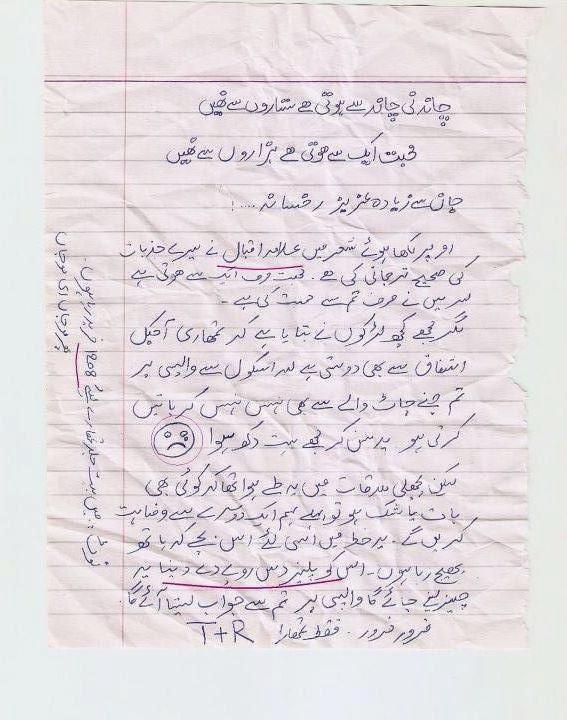 چاندنی چاند سے ہوتی ھے ستاروں سے نہیں
محبت ایک سے ھوتی ھے ہزاروں سے نہیں
جان سے زیادہ عزیز رخسانہ ....!
اوپر لکھا ہوئے شعر میں علامہ اقبال نے میرے جذبات
کی صحیح ترجمانی کی ھے۔ محبت صرف ایک سے ھوتی ہے
اور میں نے صرف تم سے محبت کی ہے۔
مگر مجھے کچھ لڑکوں نے بتایا ہے کہ تمھاری آجکل
اشفاق سے بھی دوستی ہے اور اسکول سے واپسی پر
تم چنے چاٹ والے سے بھی ہنس ہنس کر باتیں
کرتی ہو۔ یہ سن کر مجھے بہت دکھ ہوا
لیکن پچھلی ملاقات میں یہ طے ہوا تھا کہ کوئی بھی
بات یا شک ہو تو پہلے ہم ایک دوسرے سے وضاحت
کریں گے۔ یہ خط میں اسی لئے اس بچے کے ہاتھ
بھیج رہا ہوں۔ اس کو پلیز دس روپے دے دینا یہ
چیز لینے جائے گا واپسی پر تم سے جواب لیتا آئے گا۔
ضرور ضرور۔ فقط تمھارا T+R
نوٹ: میں بہت جلد تمھارے لیئے 1208 خرید رہا ہوں۔
پھر موجاں ای موجاں